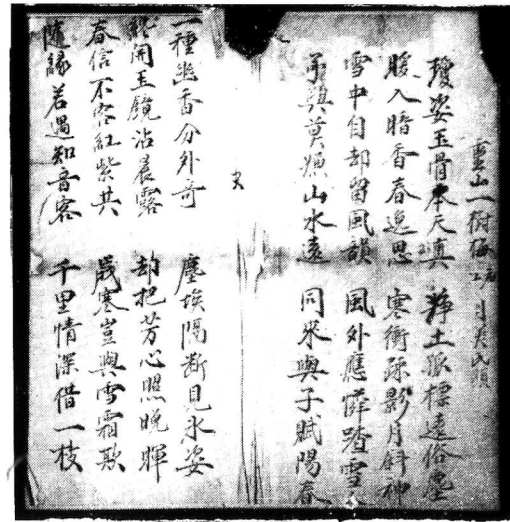 山一樹梅 月
瓊姿玉骨本天真 淨土孤標遠俗塵
暗香春逸思 寒衝疎影月斜神
雪中自却留風韻 風外應踏雪
莫嫌山水遠 同來與子賦陽春
又
一種幽香分外奇 塵埃隔斷見氷姿
開玉鏡沾晨露 却把芳心照晚輝
春信不容紅紫共 歲寒豈與雪霜欺
隨緣若遇知音客 千里情深借一枝